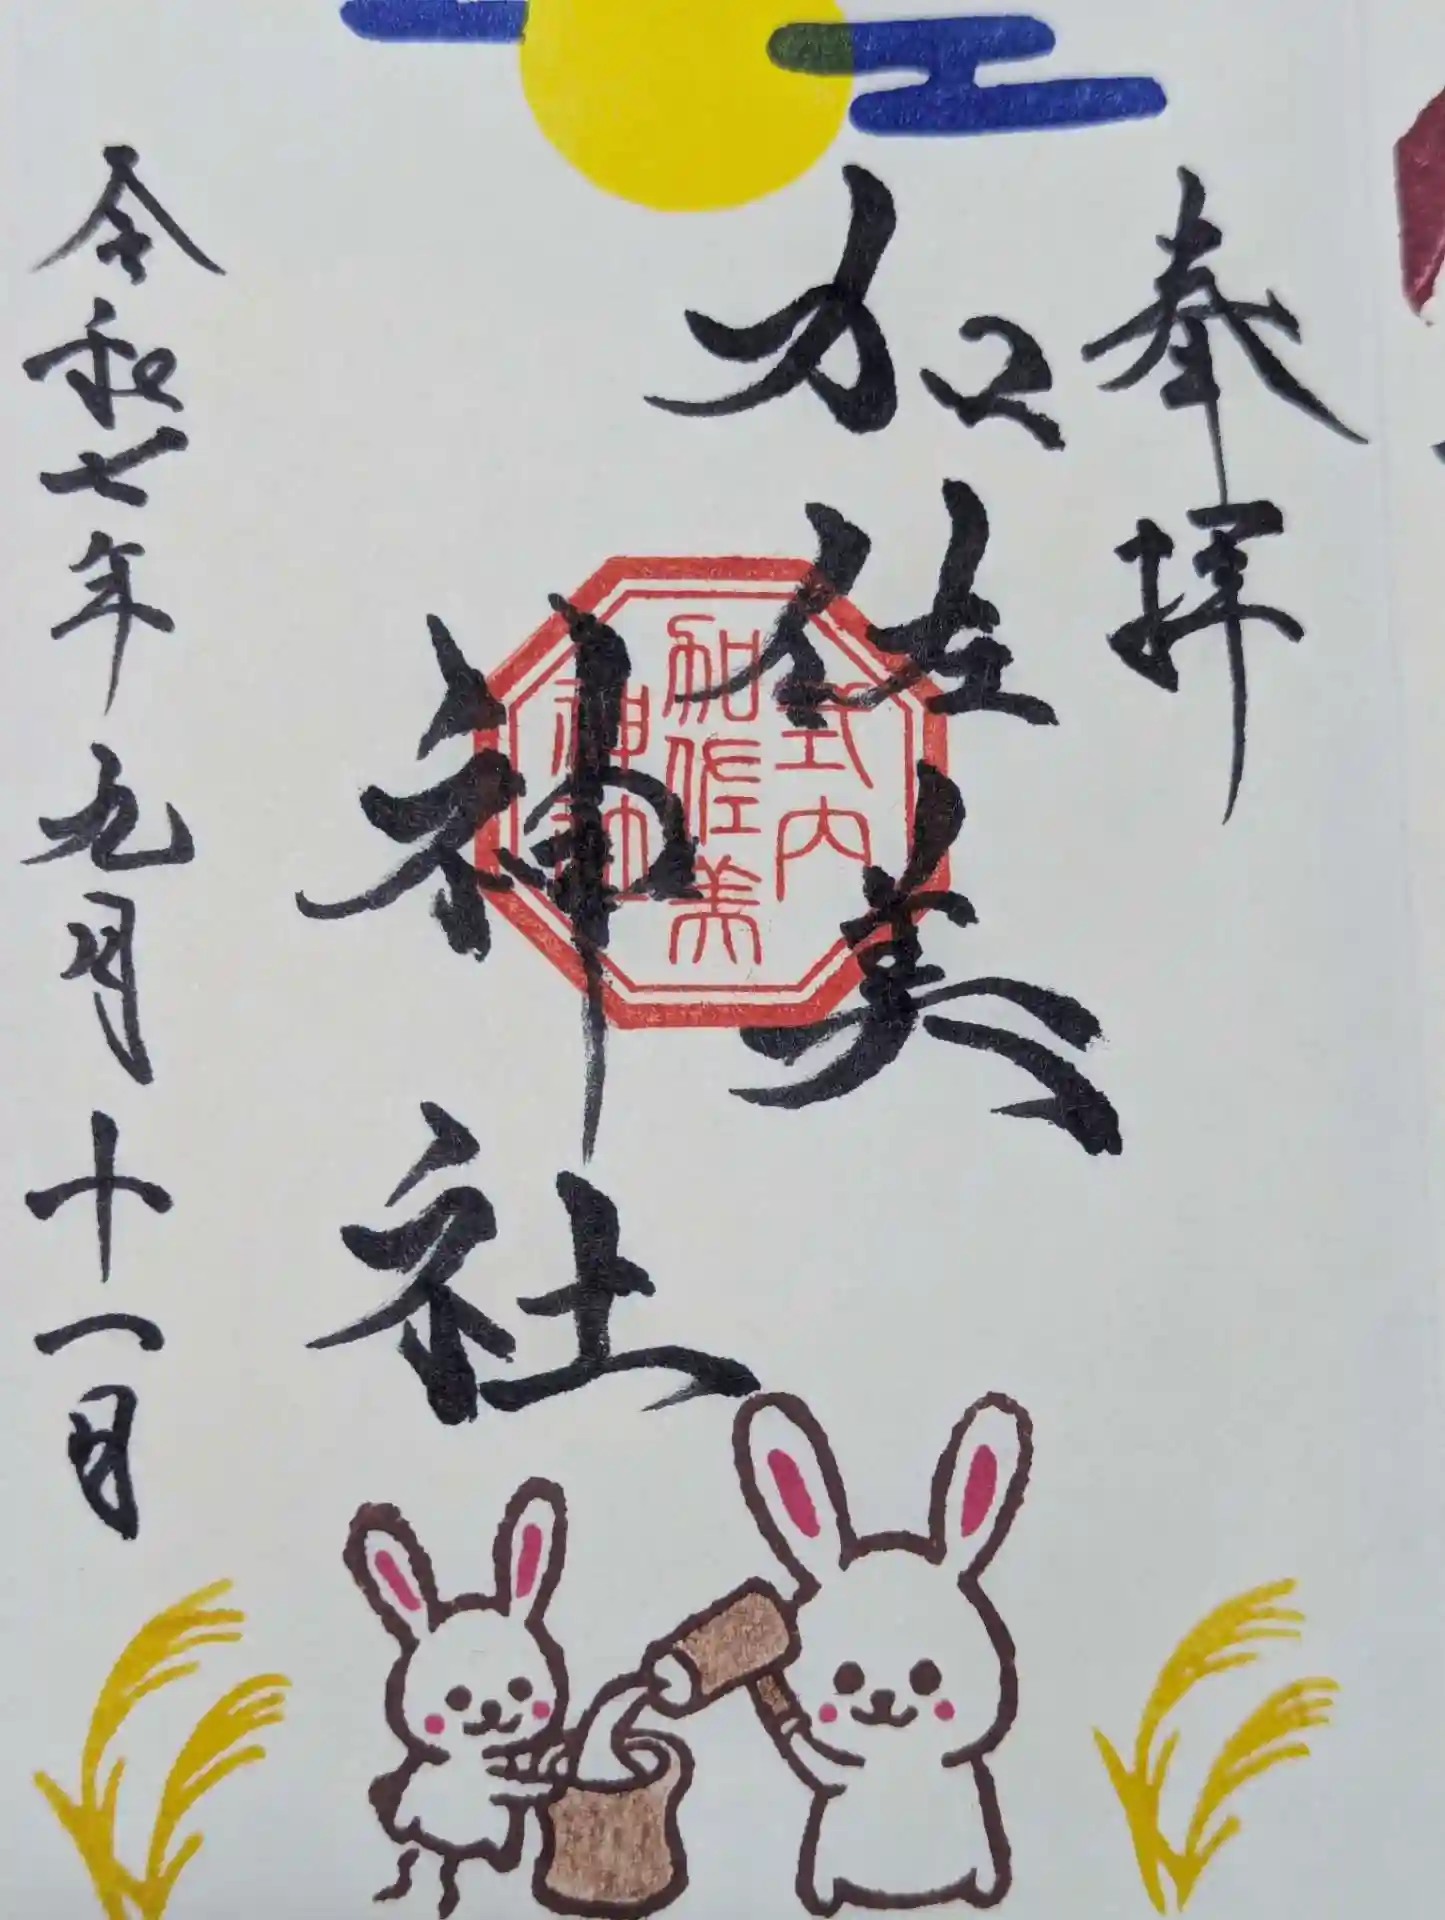 奉拝
加佐美
神社
式内
加佐美
神社
令和七年九月十一日